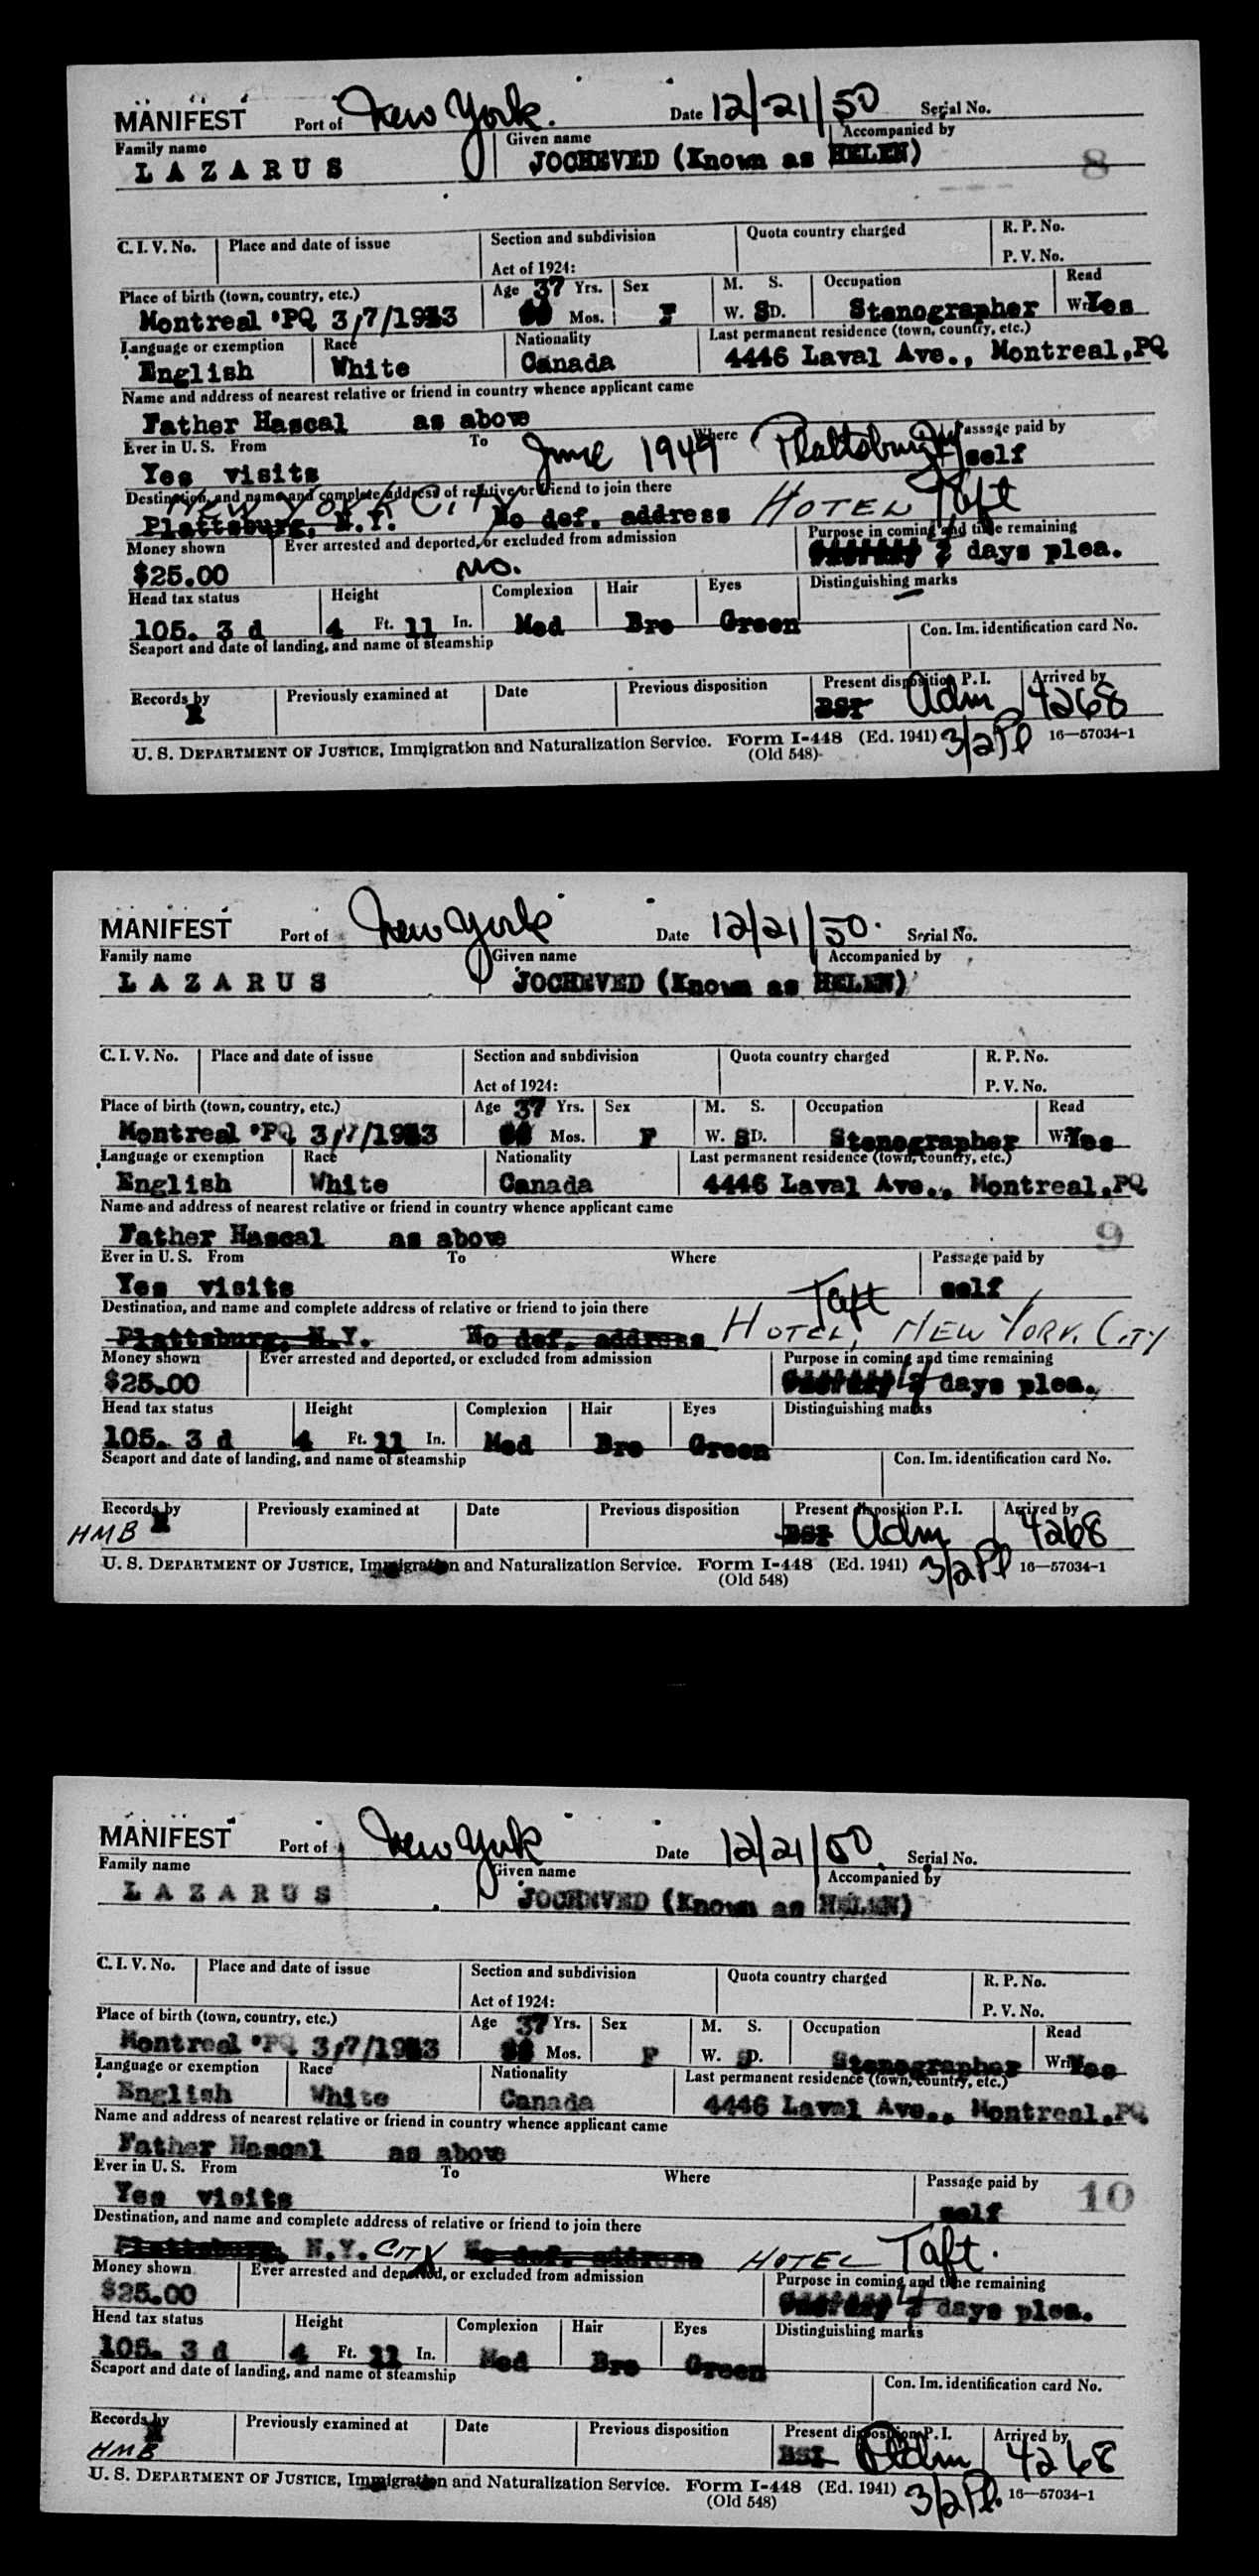 MANIFEST Port of New York. Date 12/21/50 Serial No.
Family name Given name Accompanied by
LAZARUS JOCHEVED (Known as HELEN) 8
C. I. V. No. Place and date of issue Section and subdivision Quota country charged R. P. No.
Act of 1924: P. V. No.
Place of birth (town, country, etc.) Age 37 Yrs. Sex M. S. Occupation Read
Montreal PQ 3/7/1913 Mos. F W. SD. Stenographer Yes
Language or exemption Race Nationality Last permanent residence (town, country, etc.)
English White Canada 4446 Laval Ave., Montreal,PQ
Name and address of nearest relative or friend in country whence applicant came
Father Hascal as above
Ever in U. S. From To Where Passage paid by
Yes visits June 1949 Plattsburg self
Destination, and name and complete address of relative or friend to join there
NEW YORK CITY
Plattsburg, N.Y. No def. address HOTEL Taft
Money shown Ever arrested and deported, or excluded from admission Purpose in coming and time remaining
$25.00 No. days plea.
Head tax status Height Complexion Hair Eyes Distinguishing marks
105. 3 d 4 Ft. 11 In. Med Bro Green
Seaport and date of landing, and name of steamship Con. Im. identification card No.
Records by Previously examined at Date Previous disposition Present disposition P. I. Arrived by
BSI Adm 4268
U. S. DEPARTMENT OF JUSTICE, Immigration and Naturalization Service. Form I-448 (Ed. 1941) 3/2Pl 16—57034-1
(Old 548)
MANIFEST Port of New York Date 12/21/50. Serial No.
Family name Given name Accompanied by
LAZARUS JOCHEVED (Known as HELEN)
C. I. V. No. Place and date of issue Section and subdivision Quota country charged R. P. No.
Act of 1924: P. V. No.
Place of birth (town, country, etc.) Age 37 Yrs. Sex M. S. Occupation Read
Montreal PQ 3/7/1913 Mos. F W. SD. Stenographer Yes
Language or exemption Race Nationality Last permanent residence (town, country, etc.)
English White Canada 4446 Laval Ave., Montreal,PQ
Name and address of nearest relative or friend in country whence applicant came
Father Hascal as above 9
Ever in U. S. From To Where Passage paid by
Yes visits self
Destination, and name and complete address of relative or friend to join there Taft
Plattsburg, N.Y. No def. address HOTEL, NEW YORK, CITY
Money shown Ever arrested and deported, or excluded from admission Purpose in coming and time remaining
$25.00 4 days plea.
Head tax status Height Complexion Hair Eyes Distinguishing marks
105. 3 d 4 Ft. 11 In. Med Bro Green
Seaport and date of landing, and name of steamship Con. Im. identification card No.
Records by Previously examined at Date Previous disposition Present disposition P. I. Arrived by
HMB BSI Adm 4268
U. S. DEPARTMENT OF JUSTICE, Immigration and Naturalization Service. Form I-448 (Ed. 1941) 3/2Pl 16—57034-1
(Old 548)
MANIFEST Port of New York Date 12/21/50 Serial No.
Family name Given name Accompanied by
LAZARUS JOCHEVED (Known as HELEN)
C. I. V. No. Place and date of issue Section and subdivision Quota country charged R. P. No.
Act of 1924: P. V. No.
Place of birth (town, country, etc.) Age 37 Yrs. Sex M. S. Occupation Read
Montreal PQ 3/7/1913 Mos. F W. SD. Stenographer Yes
Language or exemption Race Nationality Last permanent residence (town, country, etc.)
English White Canada 4446 Laval Ave., Montreal,PQ
Name and address of nearest relative or friend in country whence applicant came
Father Hascal as above
Ever in U. S. From To Where Passage paid by
Yes visits self 10
Destination, and name and complete address of relative or friend to join there
Plattsburg, N.Y. CITY No def. address HOTEL Taft.
Money shown Ever arrested and deported, or excluded from admission Purpose in coming and time remaining
$25.00 4 days plea.
Head tax status Height Complexion Hair Eyes Distinguishing marks
105. 3 d 4 Ft. 11 In. Med Bro Green
Seaport and date of landing, and name of steamship Con. Im. identification card No.
Records by Previously examined at Date Previous disposition Present disposition P. I. Arrived by
HMB BSI Adm 4268
U. S. DEPARTMENT OF JUSTICE, Immigration and Naturalization Service. Form I-448 (Ed. 1941) 3/2Pl. 16—57034-1
(Old 548)